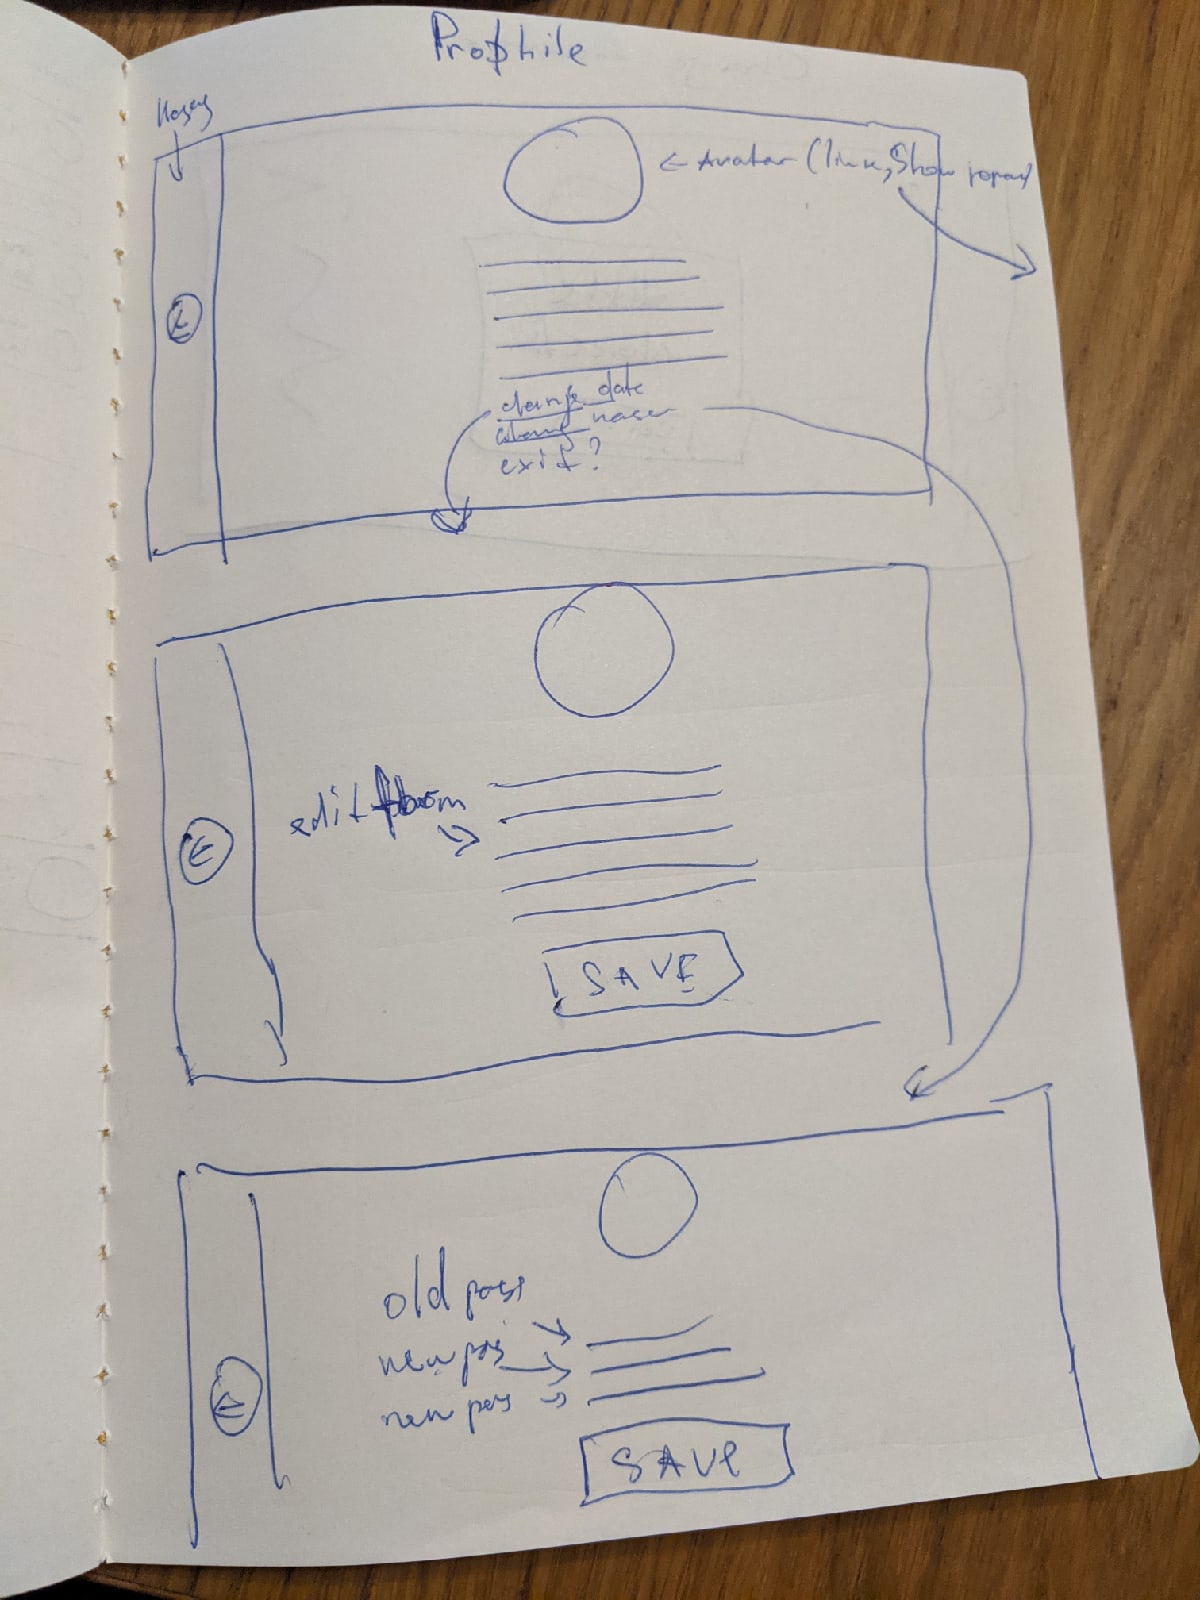 Prophile
Назад
← Avatar (link, Show popup)
change date
change пасс
exit?
edit form
SAVE
old pass
new pas
new pas
SAVE